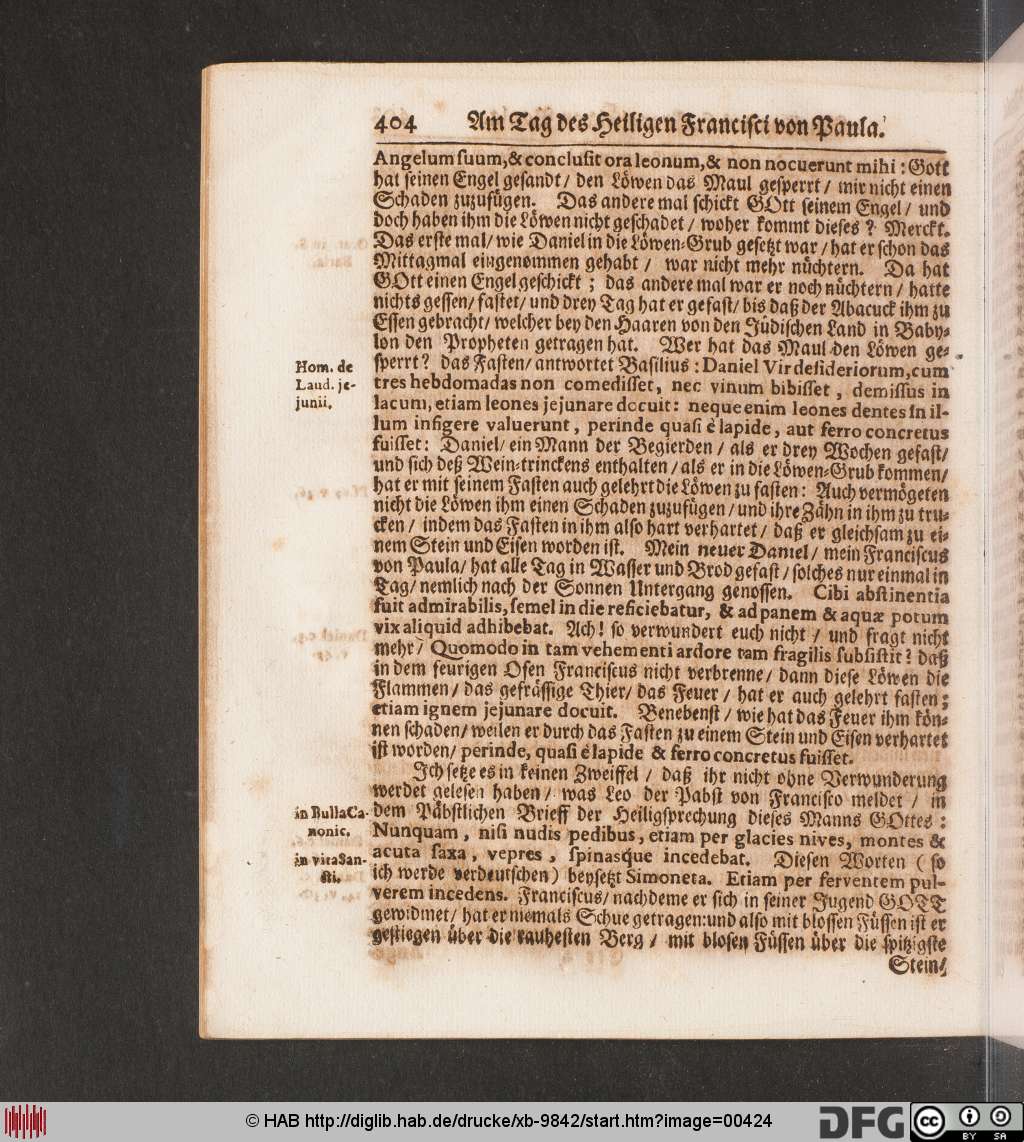 404 Am Tag des Heiligen Francisci von Paula.
Angelum suum, & conclusit ora leonum, & non nocuerunt mihi: Gott
hat seinen Engel gesandt / den Löwen das Maul gesperrt / mir nicht einen
Schaden zuzufügen. Das andere mal schickt GOtt seinem Engel / und
doch haben ihm die Löwen nicht geschadet / woher kommt dieses? Merckt.
Das erste mal / wie Daniel in die Löwen-Grub gesetzt war / hat er schon das
Mittagmal eingenommen gehabt / war nicht mehr nüchtern. Da hat
GOtt einen Engel geschickt; das andere mal war er noch nüchtern / hatte
nichts gessen / fastet / und drey Tag hat er gefast / bis daß der Abacuck ihm zu
Essen gebracht / welcher bey den Haaren von den Jüdischen Land in Baby-
lon den Propheten getragen hat. Wer hat das Maul den Löwen ge-
sperrt? das Fasten / antwortet Basilius: Daniel Vir desideriorum, cum
Hom. de
Laud. je-
junii.
tres hebdomadas non comedisset, nec vinum bibisset, demissus in
lacum, etiam leones jejunare docuit: neque enim leones dentes in il-
lum infigere valuerunt, perinde quasi è lapide, aut ferro concretus
fuisset: Daniel / ein Mann der Begierden / als er drey Wochen gefast /
und sich deß Wein-trinckens enthalten / als er in die Löwen-Grub kommen /
hat er mit seinem Fasten auch gelehrt die Löwen zu fasten: Auch vermögeten
nicht die Löwen ihm einen Schaden zuzufügen / und ihre Zähn in ihm zu tru-
cken / indem das Fasten in ihm also hart verhartet / daß er gleichsam zu ei-
nem Stein und Eisen worden ist. Mein neuer Daniel / mein Franciscus
von Paula / hat alle Tag in Wasser und Brod gefast / solches nur einmal in
Tag / nemlich nach der Sonnen Untergang genossen. Cibi abstinentia
fuit admirabilis, semel in die reficiebatur, & ad panem & aquæ potum
vix aliquid adhibebat. Ach! so verwundert euch nicht / und fragt nicht
mehr / Quomodo in tam vehementi ardore tam fragilis subsistit? daß
in dem feurigen Ofen Franciscus nicht verbrenne / dann diese Löwen die
Flammen / das gefrässige Thier / das Feuer / hat er auch gelehrt fasten;
etiam ignem jejunare docuit. Benebenst / wie hat das Feuer ihm kön-
nen schaden / weilen er durch das Fasten zu einem Stein und Eisen verhartet
ist worden / perinde, quasi è lapide & ferro concretus fuisset.
Ich setze es in keinen Zweiffel / daß ihr nicht ohne Verwunderung
werdet gelesen haben / was Leo der Pabst von Francisco meldet / in
dem Päbstlichen Brieff der Heiligsprechung dieses Manns GOttes:
in Bulla Ca-
nonic.
Nunquam, nisi nudis pedibus, etiam per glacies nives, montes &
acuta saxa, vepres, spinasque incedebat. Diesen Worten (so
in vita San-
cti.
ich werde verdeutschen) beysetzt Simoneta. Etiam per ferventem pul-
verem incedens. Franciscus / nachdeme er sich in seiner Jugend GOTT
gewidmet / hat er niemals Schue getragen: und also mit blossen Füssen ist er
gestiegen über die rauhesten Berg / mit blosen Füssen über die spitzigste
Stein-
© HAB http://diglib.hab.de/drucke/xb-9842/start.htm?image=00424
DFG
cc
BY SA